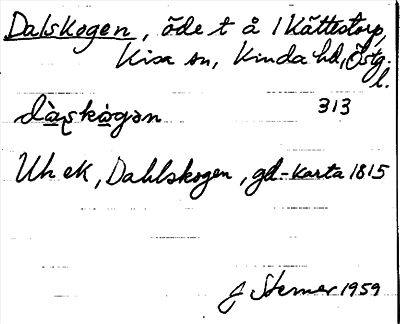 Dalskogen, öde t å 1 Kättestorp,
Kisa sn, Kinda hd, Östg.
l.
dàskògən 313
Uh ek, Dahlskogen, gd-karta 1815
J Sterner 1959